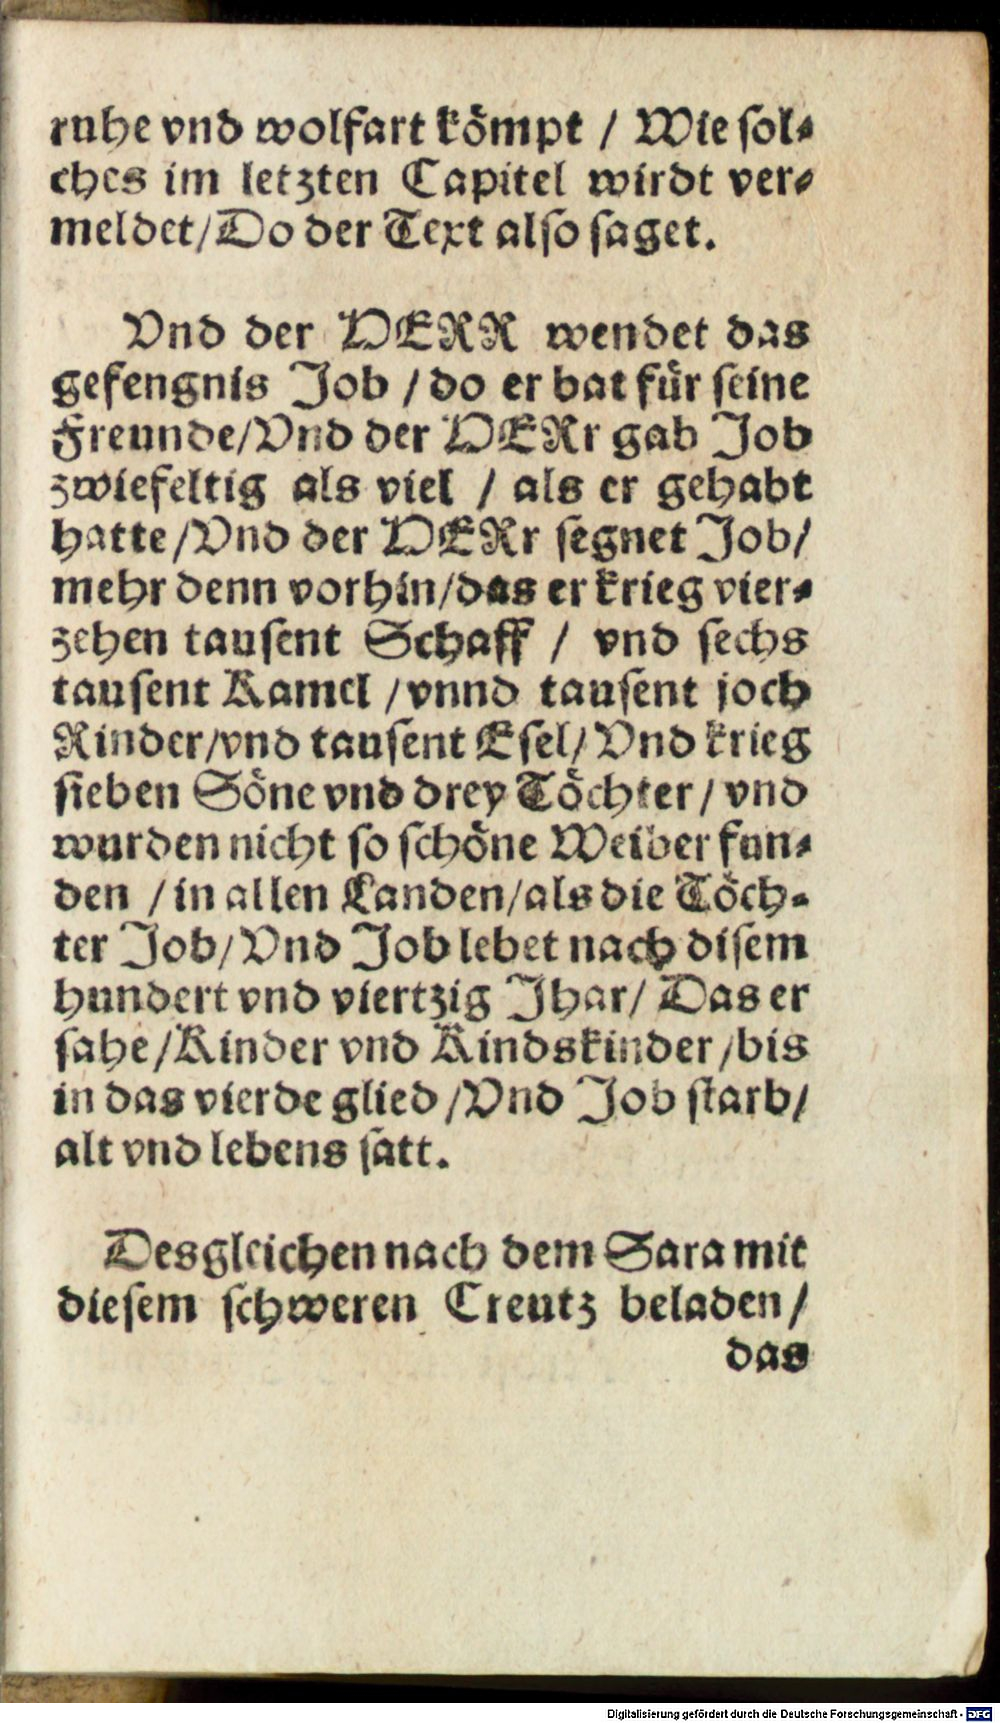 ruhe vnd wolfart kömpt / Wie sol⸗
ches im letzten Capitel wirdt ver⸗
meldet/Do der Text also saget.
Vnd der HERR wendet das
gefengnis Job / do er bat für seine
Freunde/Vnd der HERr gab Job
zwiefeltig als viel / als er gehabt
hatte /Vnd der HERr segnet Job/
mehr denn vorhin/das er krieg vier⸗
zehen tausent Schaff / vnd sechs
tausent Kamel /vnnd tausent joch
Rinder/vnd tausent Esel/Vnd krieg
sieben Söne vnd drey Töchter / vnd
wurden nicht so schöne Weiber fun⸗
den / in allen Landen/als die Töch⸗
ter Job/Vnd Job lebet nach disem
hundert vnd viertzig Jhar/ Das er
sahe /Kinder vnd Kindskinder /bis
in das vierde glied /Vnd Job starb/
alt vnd lebens satt.
Desgleichen nach dem Sara mit
diesem schweren Creutz beladen/
das
Digitalisierung gefördert durch die Deutsche Forschungsgemeinschaft - DFG